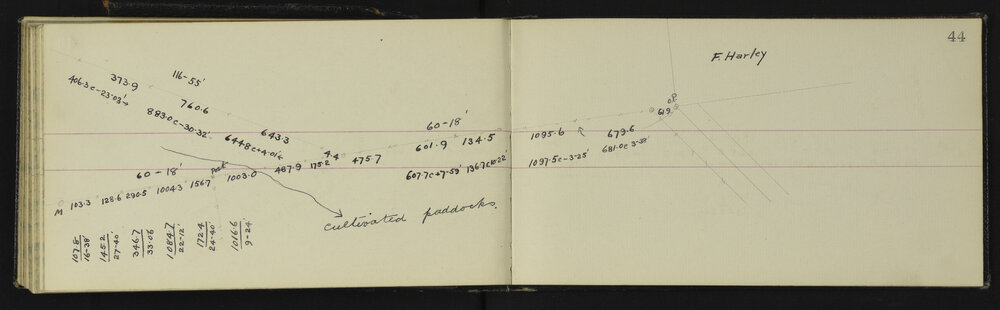 44
F. Harley
373.9
116-55'
406.3c-23.03'
760.6
883.0c-30.32'
643.3
644.8c+4.01'
4.4
475.7
60-18'
601.9
134.5
607.7c+7.59'
136.7c10.22'
1095.6
1097.5c-3.25'
679.6
681.0c 3.58'
61.9
oP
60-18'
M
103.3
128.6
290.5
1004.3
156.7
post
1003.0
487.9
175.2
cultivated paddocks.
107.8
16-38'
145.2
27-40'
346.7
33.06'
1084.7
22-12'
172.4
24-40'
1016.6
9-24'